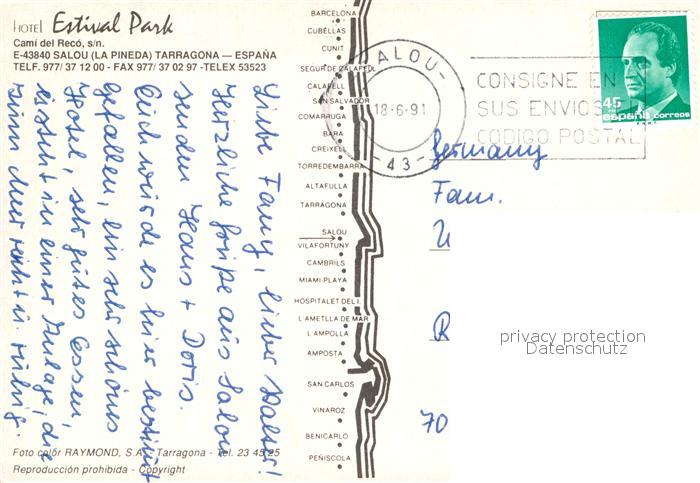 HOTEL Estival Park
Camí del Recó, s/n.
E-43840 SALOU (LA PINEDA) TARRAGONA — ESPAÑA
TELF. 977/ 37 12 00 - FAX 977/ 37 02 97 -TELEX 53523
Liebe Fanny, lieber Walter!
Herzliche Grüße aus Salou
senden Hans + Doris.
Euch würde es hier bestimmt
gefallen, ein sehr schönes
Hotel, sehr gutes Essen,
es steht in einer Anlage, die
immer
Foto color RAYMOND, S.A. Tarragona - Tel. 23 45 25
Reproducción prohibida - Copyright
BARCELONA
CUBELLAS
CUNIT
SEGUR DE CALAFELL
CALAFELL
SAN SALVADOR
COMARRUGA
BARA
CREIXELL
TORREDEMBARRA
ALTAFULLA
TARRAGONA
SALOU
VILAFORTUNY
CAMBRILS
MIAMI-PLAYA
HOSPITALET DEL I.
L'AMETLLA DE MAR
L'AMPOLLA
AMPOSTA
SAN CARLOS
VINAROZ
BENICARLO
PEÑISCOLA
SALOU
18-6-91
-43-
CONSIGNE EN
SUS ENVIOS EL
CODIGO POSTAL
45
españa correos
Germany
Fam.
R
70
privacy protection
Datenschutz